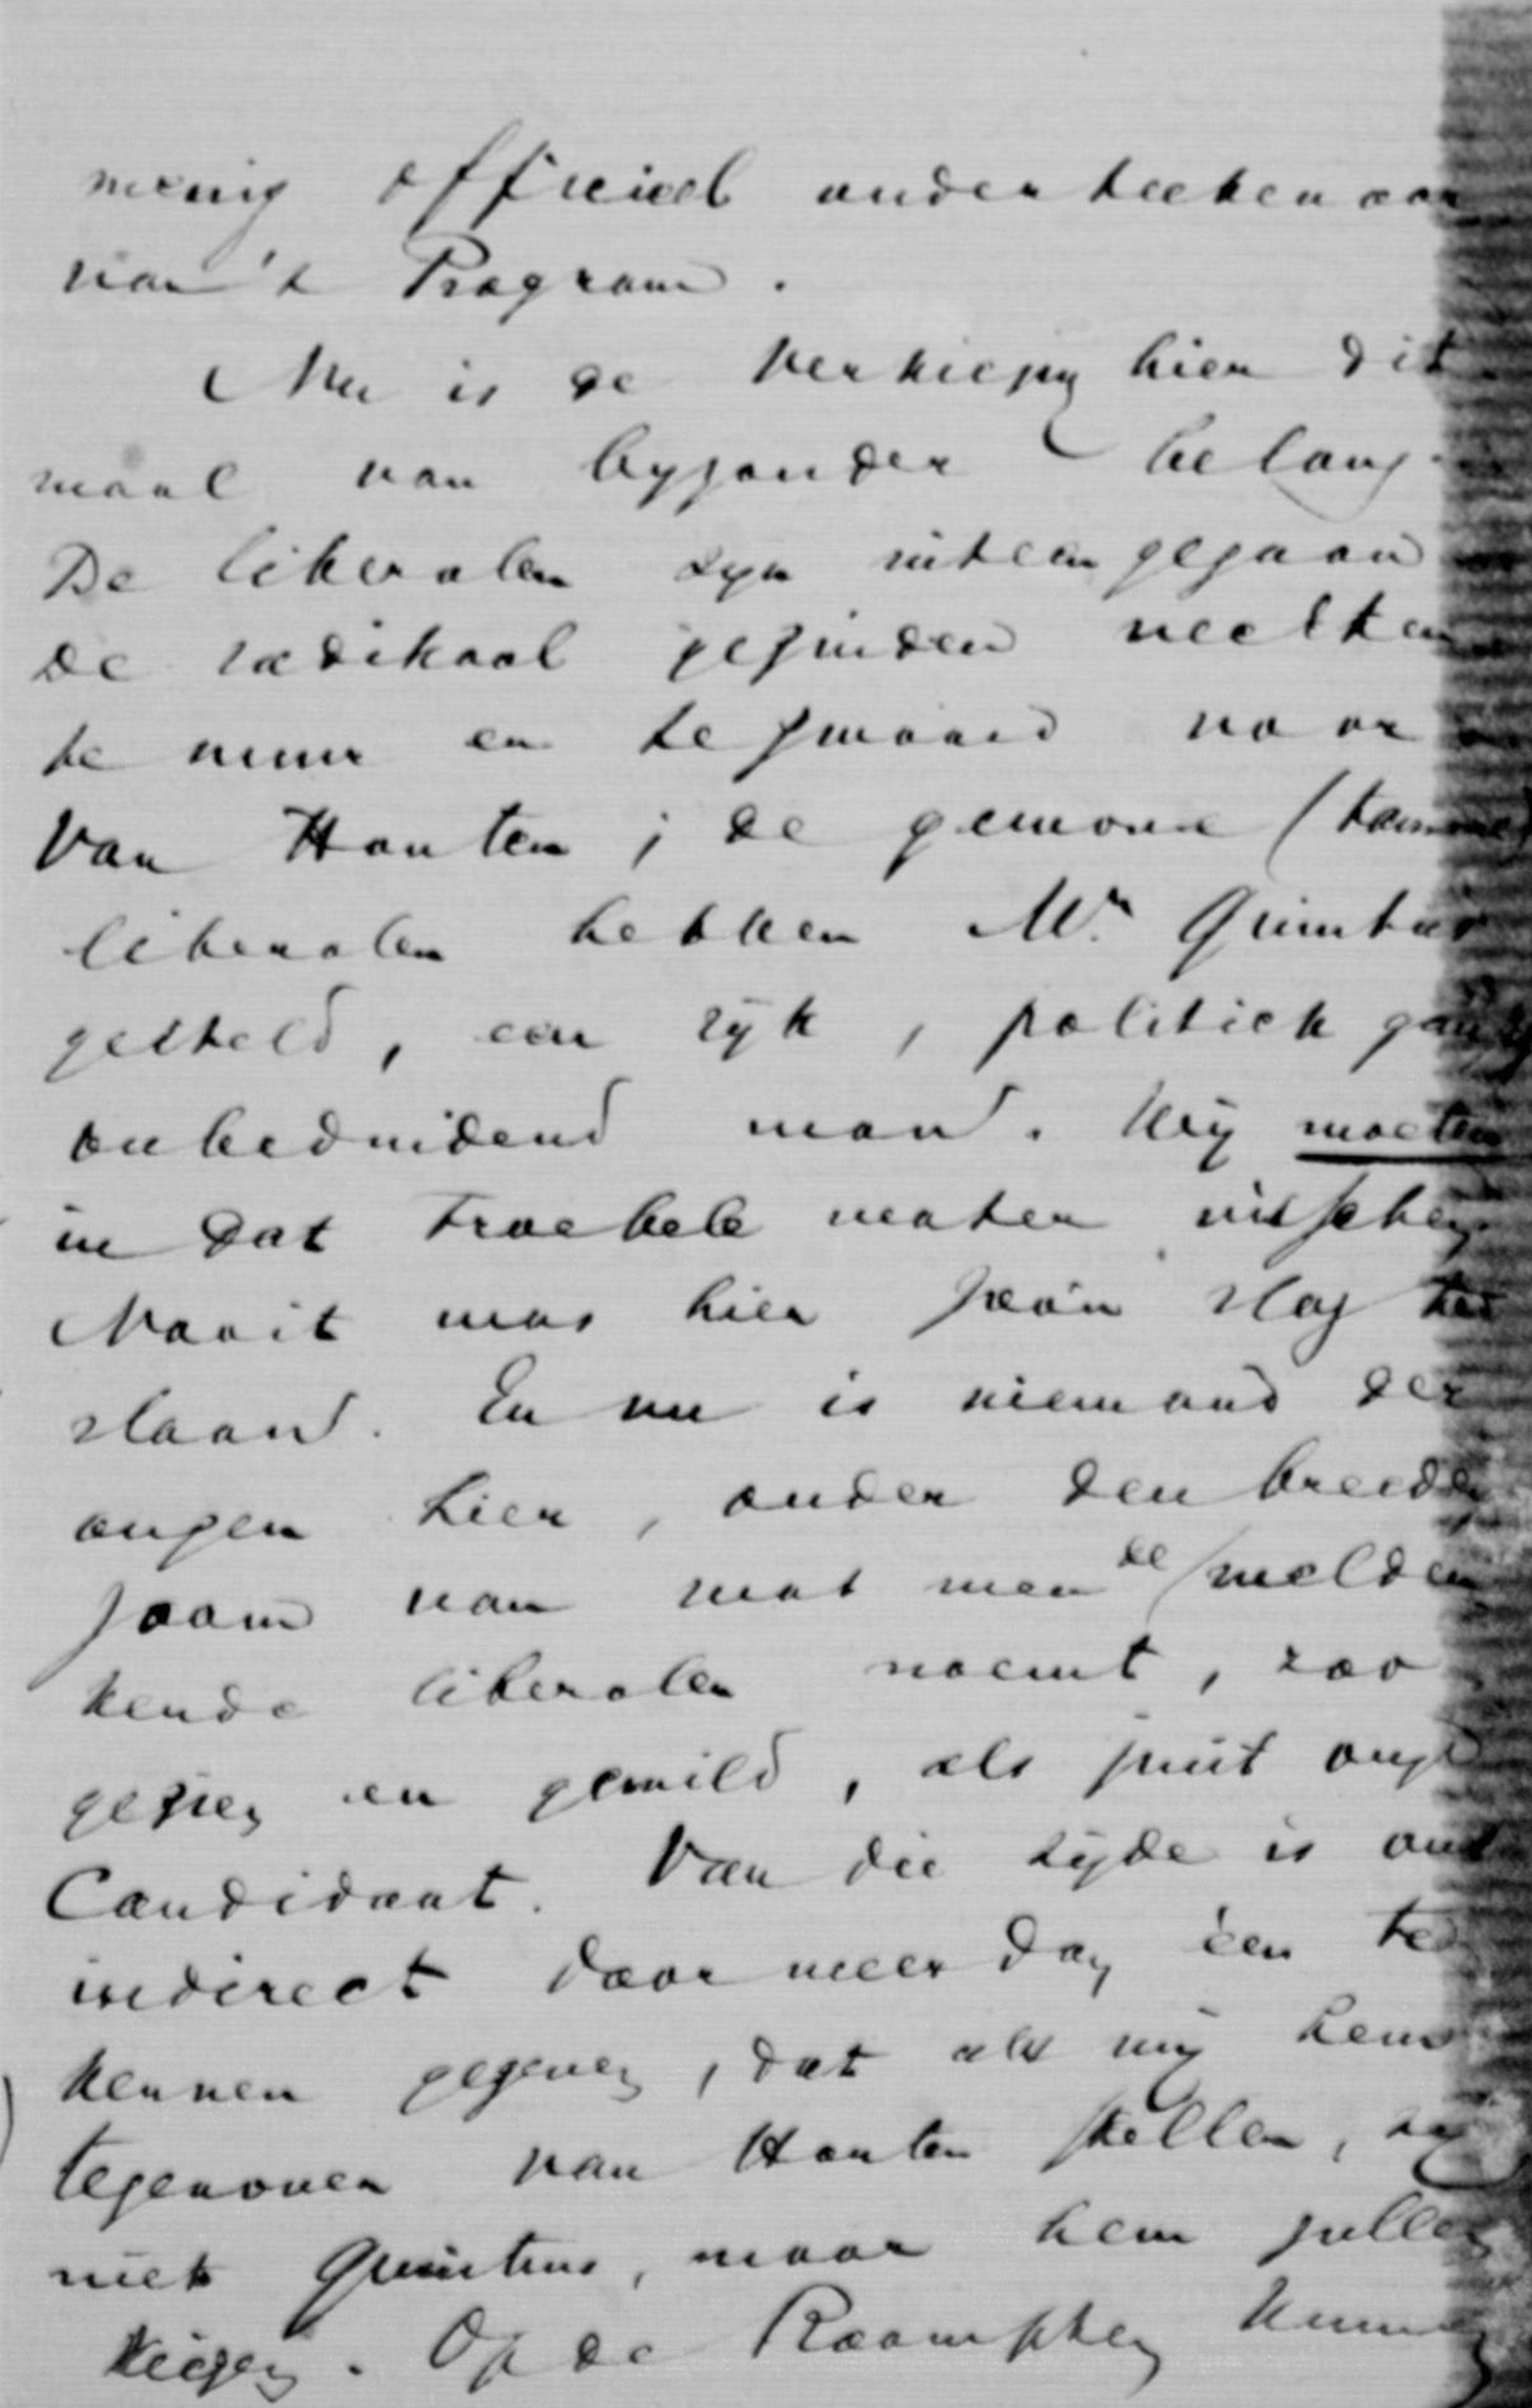 mening officieel onderteekenaar
van 't Program.
Nu is de verkiezing hier dit
maal van byzonder belang.
De liberalen zyn uiteengegaan
De radikaal gezinden welken
te ruim en te zwaard naar
Van Houten; de gewone (tamme)
liberalen hebben Mr. Quintus
gesteld, een ryk, politiek gansch
onbeduidend man. Wy moeten
in dat troebele water visschen
Nooit was hier zóó'n slag te
slaan. En nu is niemand der
onzen hier, onder den breeden
zoom van wat men de / wel den
kende liberalen noemt, zoo
gezien en gewild, als juist onze
Candidaat. Van die zyde is ons
indirect dezer meer dag een te
kennen gegeven, dat als wy hem
tegenover van Houten stellen, zy
niet Quintus, maar hem zullen
kiezen. Op de Raampten kunnen